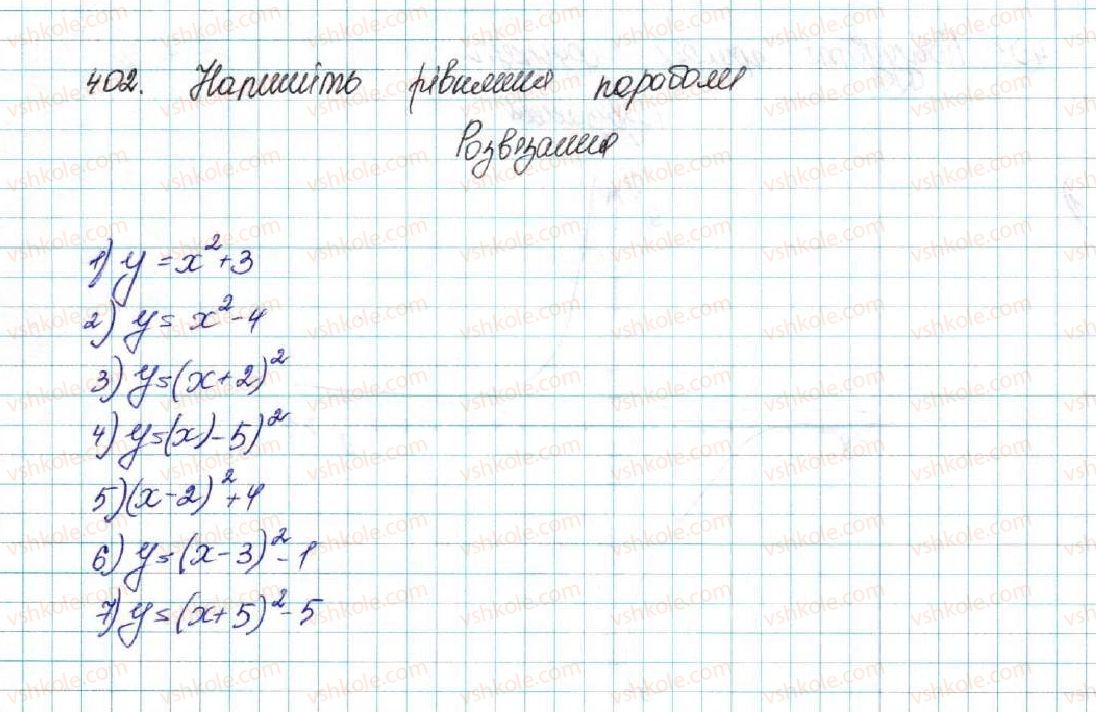 402. Напишіть рівняння параболи
Розв'язання
1) y = x² + 3
2) y = x² - 4
3) y = (x + 2)²
4) y = (x) - 5)²
5) (x - 2)² + 4
6) y = (x - 3)² - 1
7) y = (x + 5)² - 5